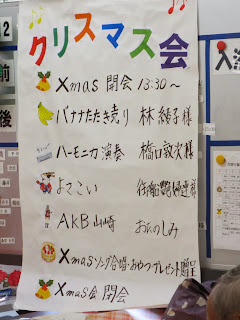 クリスマス会
Xmas 開会 13:30〜
バナナたたき売り 林 緑子様
ハーモニカ演奏 橋口敦次様
よさこい 様
AKB山崎 おたのしみ
Xmasソング合唱・おやつプレゼント贈呈
Xmas会 閉会
12
前
後
入